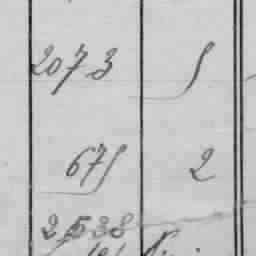 2073 5
675 2
2538